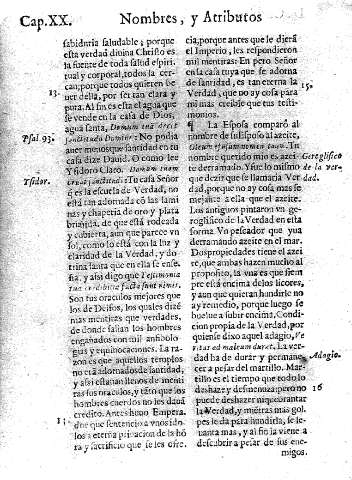 Cap.XX. Nombres, y Atributos
sabiduria saludable; porque
esta verdad diuina Christo es
la fuente de toda salud espiri-
tual y corporal, todos la cer-
can; porque todos quieren be
uer della, por ser tan clara y
pura. Al fin es esta el agua que
se vende en la casa de Dios,
agua santa,
13.
Psal. 93.
No podia
auer menos que santidad en tu
casa dize Dauid. O como lee
Ysidoro Claro.
Tsidor.
Tu casa Señor
q̃ es la escuela de Verdad, no
està tan adornada cõ las lami
nas y chaperia de oro y plata
bruñida, de que està rodeada
y cubierta, aun que parece vn
sol, como lo està con la luz y
claridad de la Verdad, y do-
trina santa que en ella se ense-
ña, y assi digo que
Son tus oraculos mejores que
los de Delfos, los quales dizē
mas mentiras que verdades,
de donde salian los hombres
engañados con mil anfibolo-
gias y equiuocaciones. La ra-
zon es que aquellos templos
no està adornados de santidad,
y assi estan llenos de menti-
ras sus oraculos, y tãto que los
hombres cuerdos no les dauã
credito. Antes huuo Empera-
dor que sentencio a vnos ido-
los a eterna priuacion de la hõ
ra y sacrificio que se les ofre-
cia, porque antes que le dierã
el Imperio, les respondieron
mil mentiras: En pero Señor
en la casa tuya que se adorna
de santidad, es tan eterna la
Verdad, que no ay cosa para
mi mas creible que tus testi-
monios.
15.
¶ La Esposa comparò al
nombre de su Esposo al azeite,
Oleum effusum nomen tuum. Tu
nombre querido mio es azei-
te derramado. Y fue lo mismo
que dezir que se llamaria Ver
dad, porque no ay cosa mas se
mejante a ella que el azeite.
Gereglifico
de la ver-
dad.
Los antiguos pintaron vn ge-
roglifico de la Verdad en esta
forma. Vn pescador que yua
derramando azeite en el mar.
Dos propiedades tiene el azei
te, que ambas hazen mucho al
proposito, la vna es que siem
pre està encima delos licores,
y aun que quieran hundirle no
ay remedio, porque luego se
buelue a subir encima. Condi
cion propia de la Verdad, por
quien se dixo aquel adagio, Ve
ritas ad malleum duret. La ver-
dad ha de durar y permane-
cer a pesar del martillo. Mar-
Adagio.
tillo es el tiempo que todo lo
deshaze y desmenuza; pero no
puede deshazer ni quebrantar
la Verdad, y miẽtras mas gol-
pes le da para hundirla, se le-
uanta mas, y al fin la viene a
descubrir a pesar de sus ene-
migos.
16